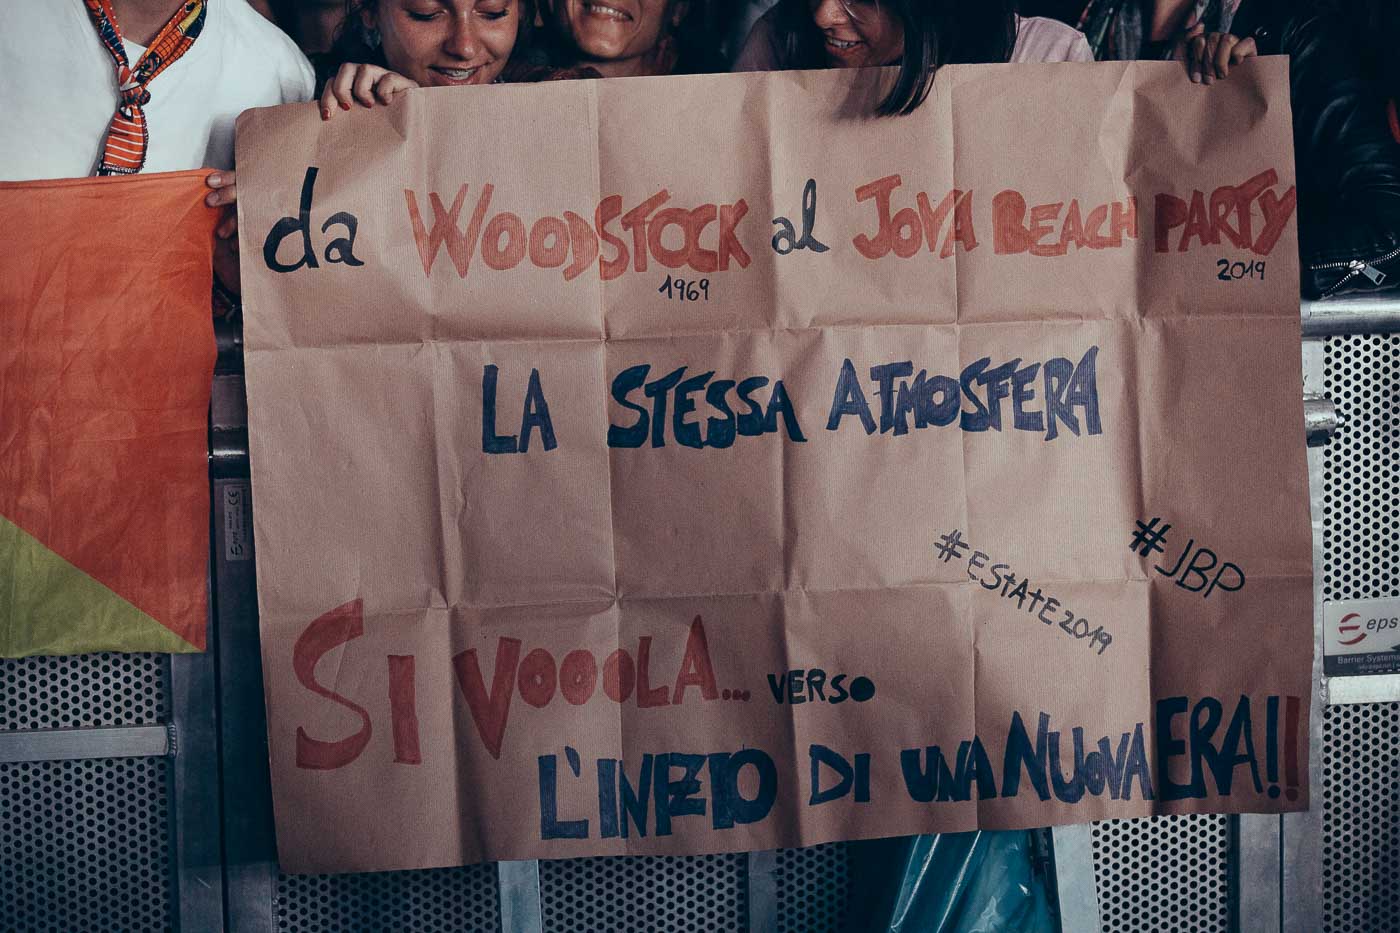 da WOODSTOCK al JOVA BEACH PARTY
1969 2019
LA STESSA ATMOSFERA
#ESTATE2019 #JBP
SI VOOOLA... VERSO
L'INIZIO DI UNA NUOVA ERA!!
eps
Barrier Systems